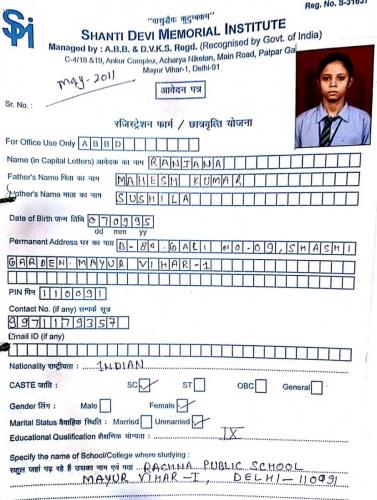 Reg. No. S-31637
"वासुदैव कुटुम्बकम"
SPMI
SHANTI DEVI MEMORIAL INSTITUTE
Managed by : A.B.B. & D.V.K.S. Regd. (Recognised by Govt. of India)
C-4/18 &19, Ankur Complex, Acharya Niketan, Main Road, Patpar Ga
Mayur Vihar-1, Delhi-91
may-2011
आवेदन पत्र
Sr. No. :
रजिस्ट्रेशन फार्म / छात्रवृत्ति योजना
For Office Use Only ABBD
Name (in Capital Letters) आवेदक का नाम RANJANA
Father's Name पिता का नाम MAHESH KUMAR
Mother's Name माता का नाम SUSHILA
Date of Birth जन्म तिथि 070995
dd mm yy
Permanent Address घर का पता B-80 GALI NO-09, SHASHI
GARDEN MAYUR VIHAR-1
PIN पिन 110091
Contact No. (if any) सम्पर्क सूत्र
9971179357
Email ID (if any)
Nationality राष्ट्रीयता : INDIAN
CASTE जाति : SC ST OBC General
Gender लिंग : Male Female
Marital Status वैवाहिक स्थिति : Married Unmarried
Educational Qualification शैक्षणिक योग्यता : IX
Specify the name of School/College where studying :
स्कूल जहां पढ़ रहे हैं उसका नाम एवं पता RACHNA PUBLIC SCHOOL
MAYUR VIHAR-I, DELHI-110091